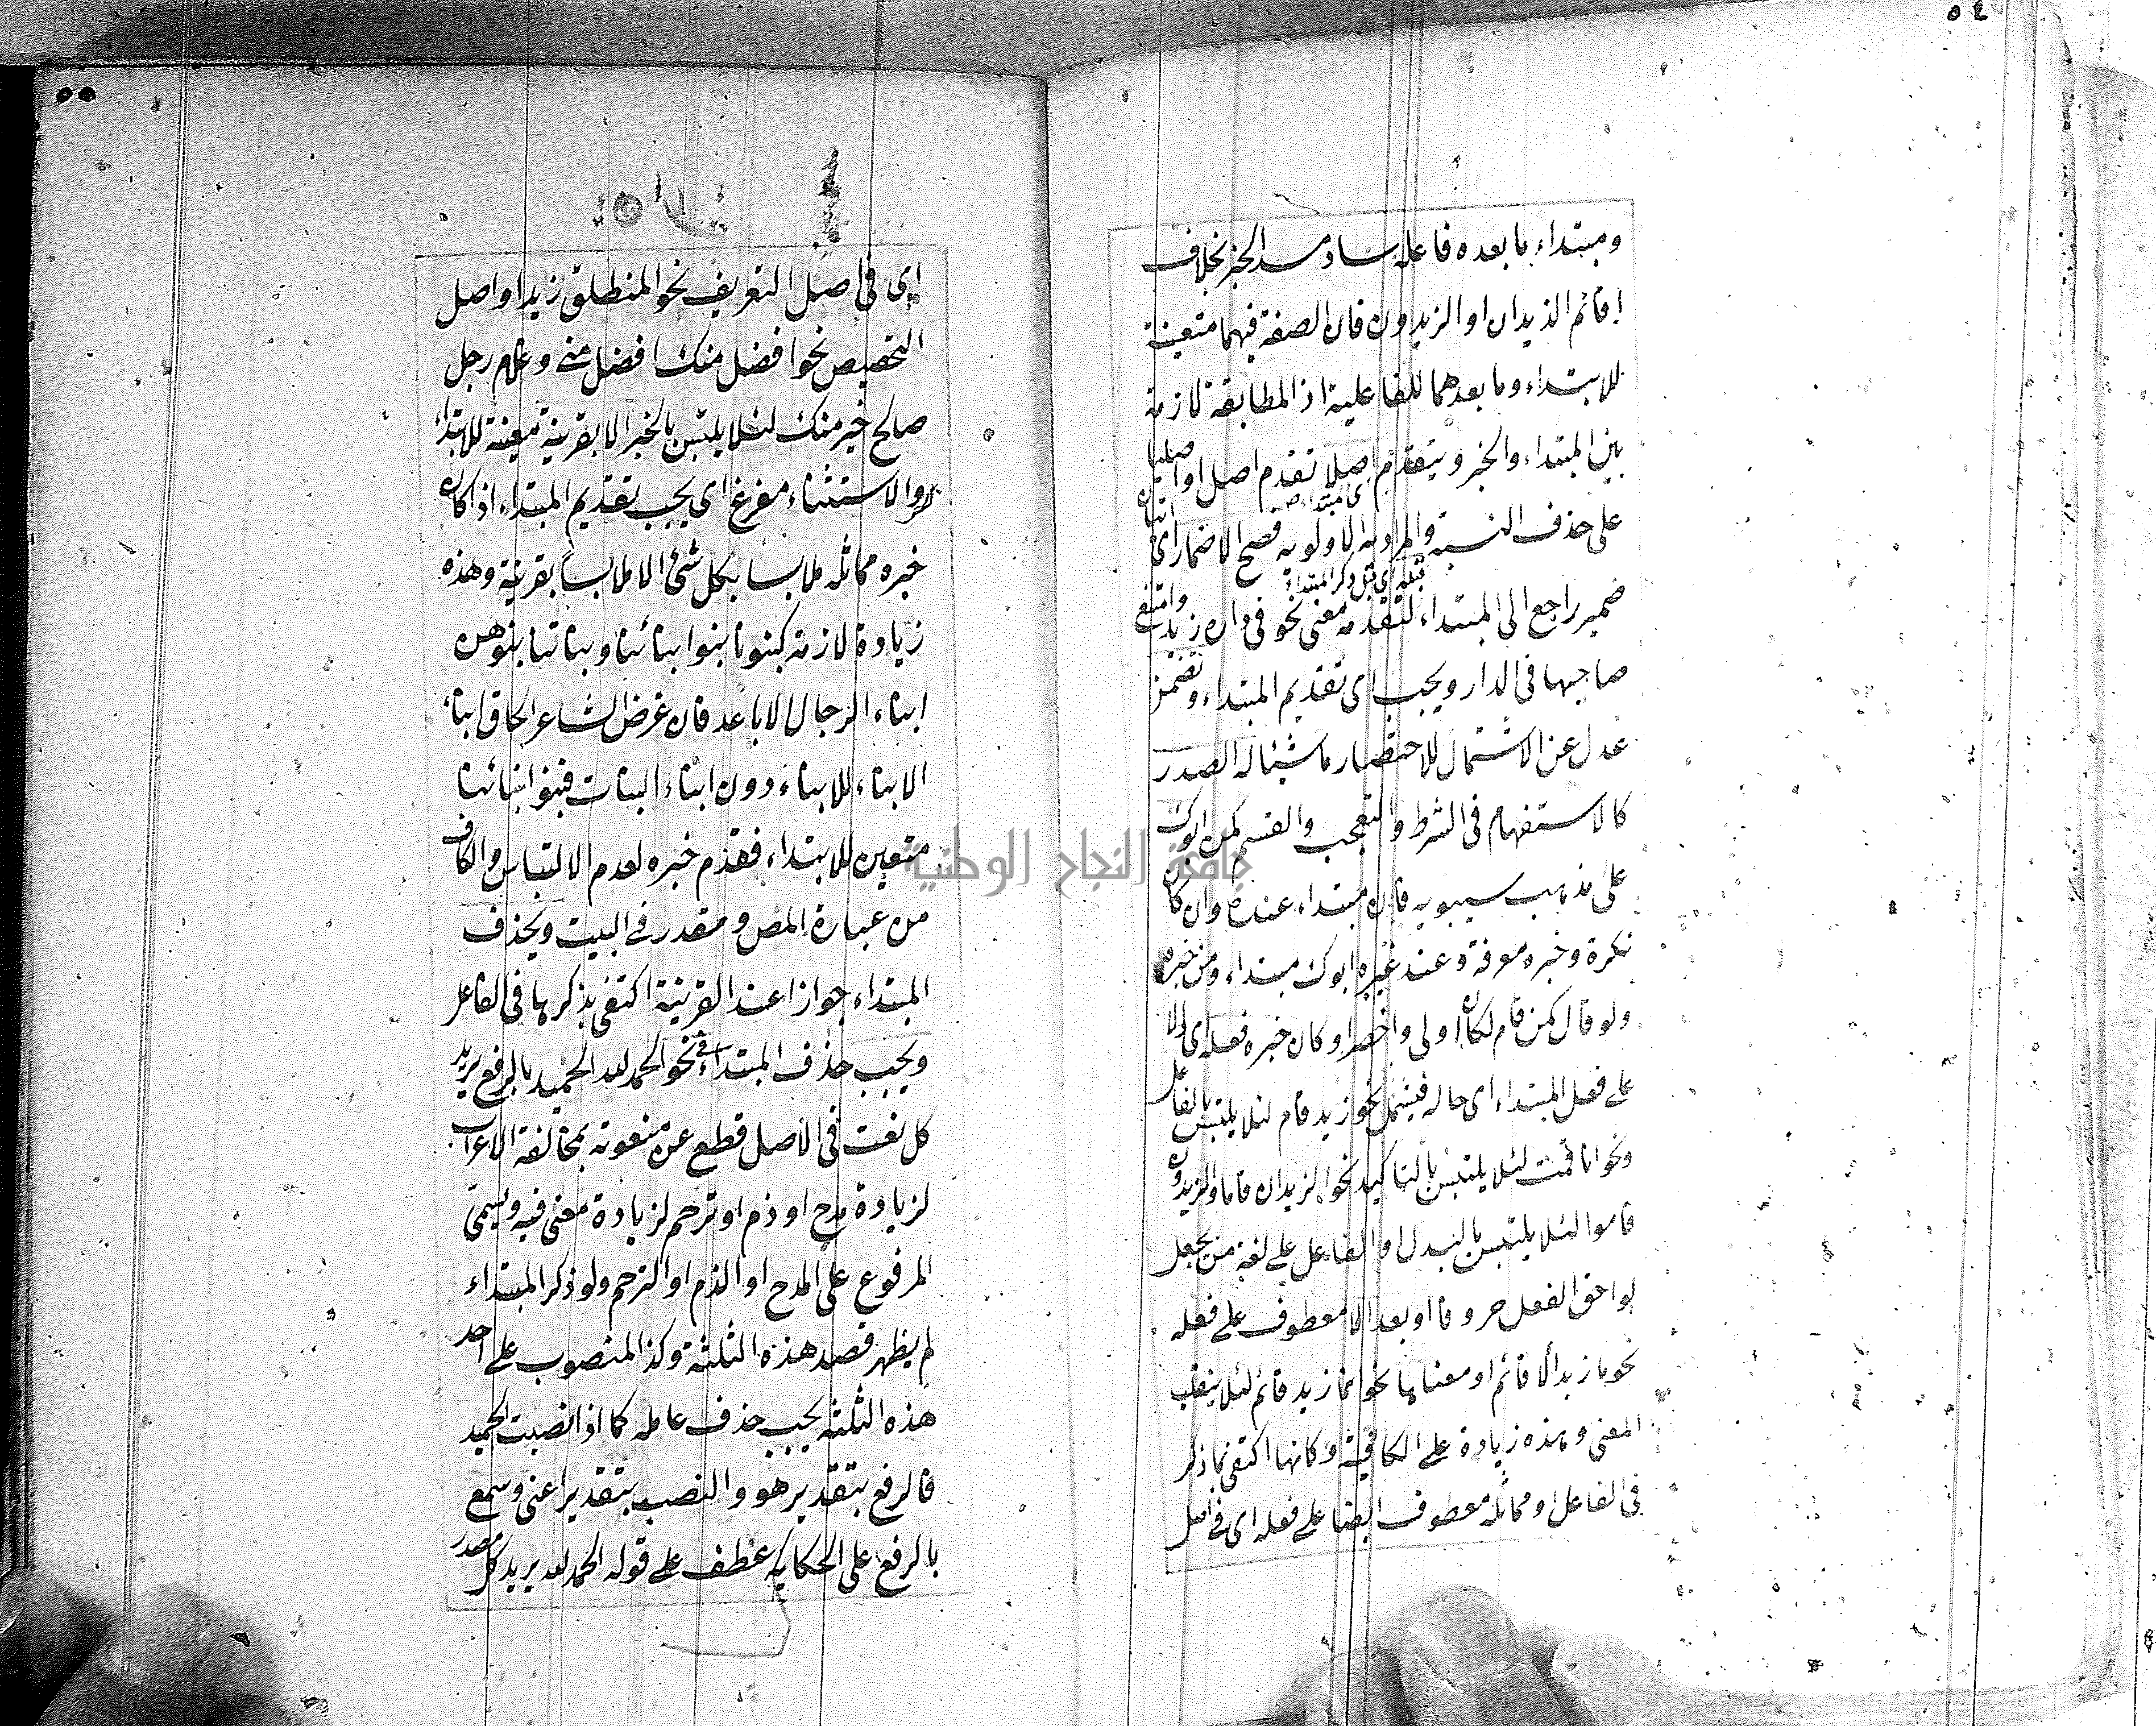 ٥٤
ومبتداء ما بعده فاعله ساد مسد الخبر بخلاف
اقائم الزيدان او الزيدون فان الصفة فيهما متعينة
للابتداء وما بعدهما للفاعلية اذ المطابقة لازمة
بين المبتداء والخبر ويتقدم اصلا تقدم اصل او اصليا
على حذف النسبة والمراد به الاولوية فصح الاضمار اى اتيان
اى المبتداء
ضمير راجع الى المبتداء لتقدمه معنى نحو فى داره زيد وامتنع
قبله اى قبل ذكر المبتداء
صاحبها فى الدار ويجب اى تقديم المبتداء وتضمن
عدل عن الاشتمال للاختصار ما شيئا له الصدر
كالاستفهام فى الشرط والتعجب والقسم كمن ابوك
على مذهب سيبويه فان مبتداء عنده وان كان
نكرة وخبره معرفة وعند غيره ابوك مبتداء ومن خبره
ولو قال كمن قام لكان اولى واخصر او كان خبره فعله اى دالا
على فعل المبتداء اى حاله فيشمل نحو زيد قام لئلا يلتبس بالفاعل
ونحو انا قمت لئلا يلتبس بالتاكيد نحو الزيدان قاما والزيدون
قاموا لئلا يلتبس بالبدل او الفاعل على لغة من يجعل
لواحق الفعل حروفا او بعد الا معطوف على فعله
نحو ما زيد الا قائم او معناها نحو انما زيد قائم لئلا ينقلب
المعنى وهذه زيادة على الكافية وكانها اكتفى بما ذكر
فى الفاعل او مماثله معطوف ايضا على فعله اى فى اصل
٥٥
اى فى اصل التعريف نحو المنطلق زيد او اصل
التخصيص نحو افضل منك افضل منى وغلام رجل
صالح خير منك لئلا يلتبس بالخبر الا بقرينة معينة للابتداء
والاستثناء مفرغ اى يجب تقديم المبتداء اذا كان
خبره مماثله ملابسا بكل شئ الا ملابسا بقرينة وهذه
زيادة لازمة كبنونا بنوا ابنائنا وبناتنا بنوهن
ابناء الرجال الاباعد فان غرض الشاعر الحاق ابناء
الابناء للابناء دون ابناء البنات فبنوا ابنائنا
متعين للابتداء فقدم خبره لعدم الالتباس والكاف
من عبارة المص ومقدر فى البيت ويحذف
المبتداء جوازا عند القرينة اكتفى بذكرها فى الفاعل
ويجب حذف المبتداء فى نحو الحمد لله الحميد بالرفع يريد
كل نعت فى الاصل قطع عن منعوته بمخالفة الاعراب
لزيادة مدح او ذم او ترحم لزيادة معنى فيه ويسمى
المرفوع على المدح او الذم او الترحم ولو ذكر المبتداء
لم يظهر قصد هذه الثلثة وكذا المنصوب على احد
هذه الثلثة يجب حذف عامله كما اذا نصبت الحميد
فالرفع بتقدير هو والنصب بتقدير اعنى وسمع
بالرفع على الحكاية عطف على قوله الحمد لله يريد كل مصدر
جامعة النجاح الوطنية